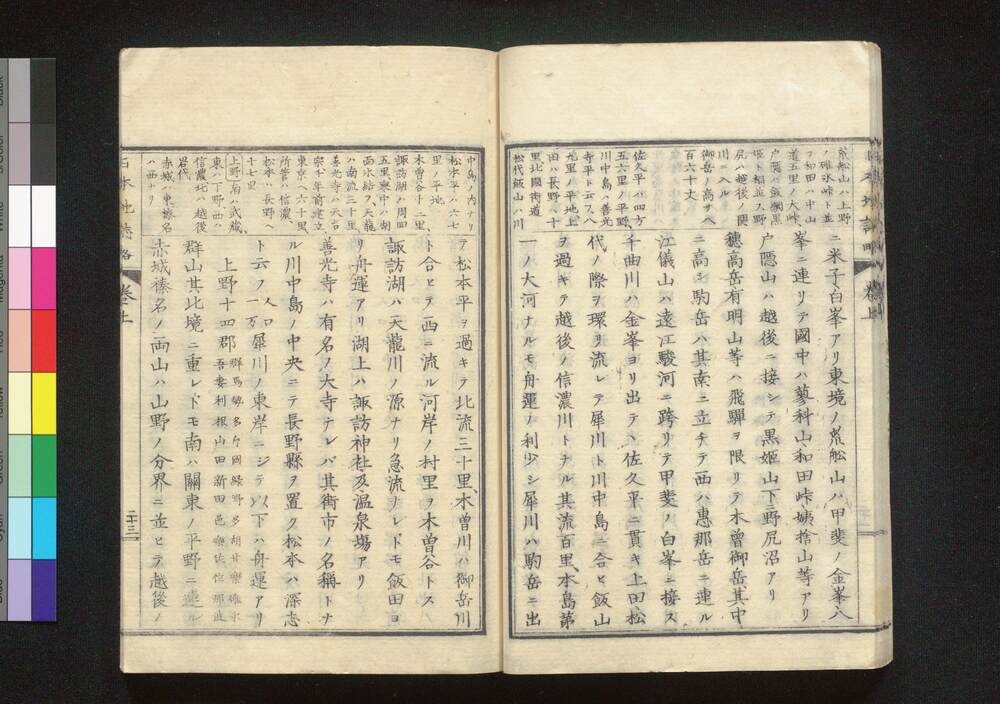 荒船山ハ上野
ノ碓氷峠ト並
ヒ和田ハ中山
道五里ノ大峠
戸隠ハ飯綱黒
姫ト相並ス野
尻ハ越後ノ関
川ニ入ル
御岳ノ高サハ
百六十丈
佐久平ハ四方
五六里ノ平野
川中島ハ善光
寺平ト云フ八
九里ノ平地上
田ハ長野ヘ十
里北國街道
松代飯山ハ川
ニ米子白峯アリ東境ノ荒舩山ハ甲斐ノ金峯八
峯ニ連リテ國中ハ蓼科山和田峠姨捨山等アリ
戸隠山ハ越後ニ接シテ黒姫山下ニ野尻沼アリ
穂高岳有明山等ハ飛驒ヲ限リテ木曽御岳其中
ニ高シ駒岳ハ其南ニ立チテ西ハ惠那岳ニ連ル
江儀山ハ遠江駿河ニ跨リテ甲斐ノ白峯ニ接ス
千曲川ハ金峯ヨリ出テヽ佐久平ニ貫キ上田松
代ノ際ヲ環リ流レテ犀川ト川中島ニ合ヒ飯山
ヲ過キテ越後ノ信濃川トナル其流百里本島第
一ノ大河ナルモ舟運ノ利少シ犀川ハ駒岳ニ出
中島ノ内ナリ
松本平ハ六七
里ノ平地
木曽谷十二里
諏訪湖ハ周四
五里寒中ハ湖
面氷結ス天龍
ハ南流三十里
善光寺ハ天台
宗千年前建立
東京ヘ六十里
所管ハ信濃
松本ハ長野ヘ
十七里
上野南ハ武藏
東ハ下野西ハ
信濃北ハ越後
岩代
赤城ハ東榛名
ハ西ナリ
テ松本平ヲ過キテ北流三十里木曽川ハ御岳川
ト合ヒテ西ニ流ル河岸ノ村里ヲ木曽谷トス
諏訪湖ハ天龍川ノ源ナリ急流ナレドモ飯田ヨ
リ舟運アリ湖上ハ諏訪神社及温泉塲アリ
善光寺ハ有名ノ大寺ナレバ其街市ノ名稱トナ
ル川中島ノ中央ニテ長野縣ヲ置ク松本ハ深志
ト云フ人口一万犀川ノ東岸ニシテ以下ハ舟運アリ
上野十四郡群馬勢多片岡緑野多胡甘樂碓氷吾妻利根山田新田邑樂佐位那波
群山其北境ニ重レドモ南ハ關東ノ平野ニ連ル
赤城榛名ノ両山ハ山野ノ分界ニ並ヒテ越後ノ
日本地誌略
巻上
二十三